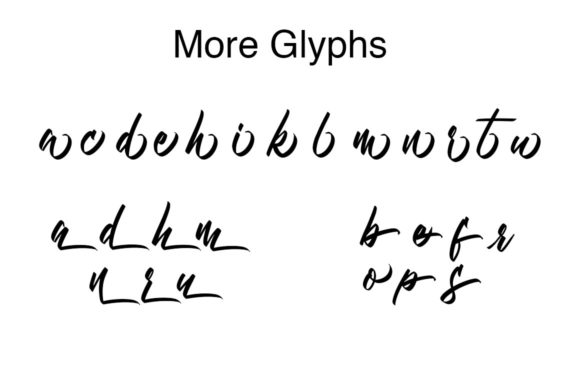 More Glyphs
a c d e h i k l m n r t w
a d h m
n r u
b e f r
o p s